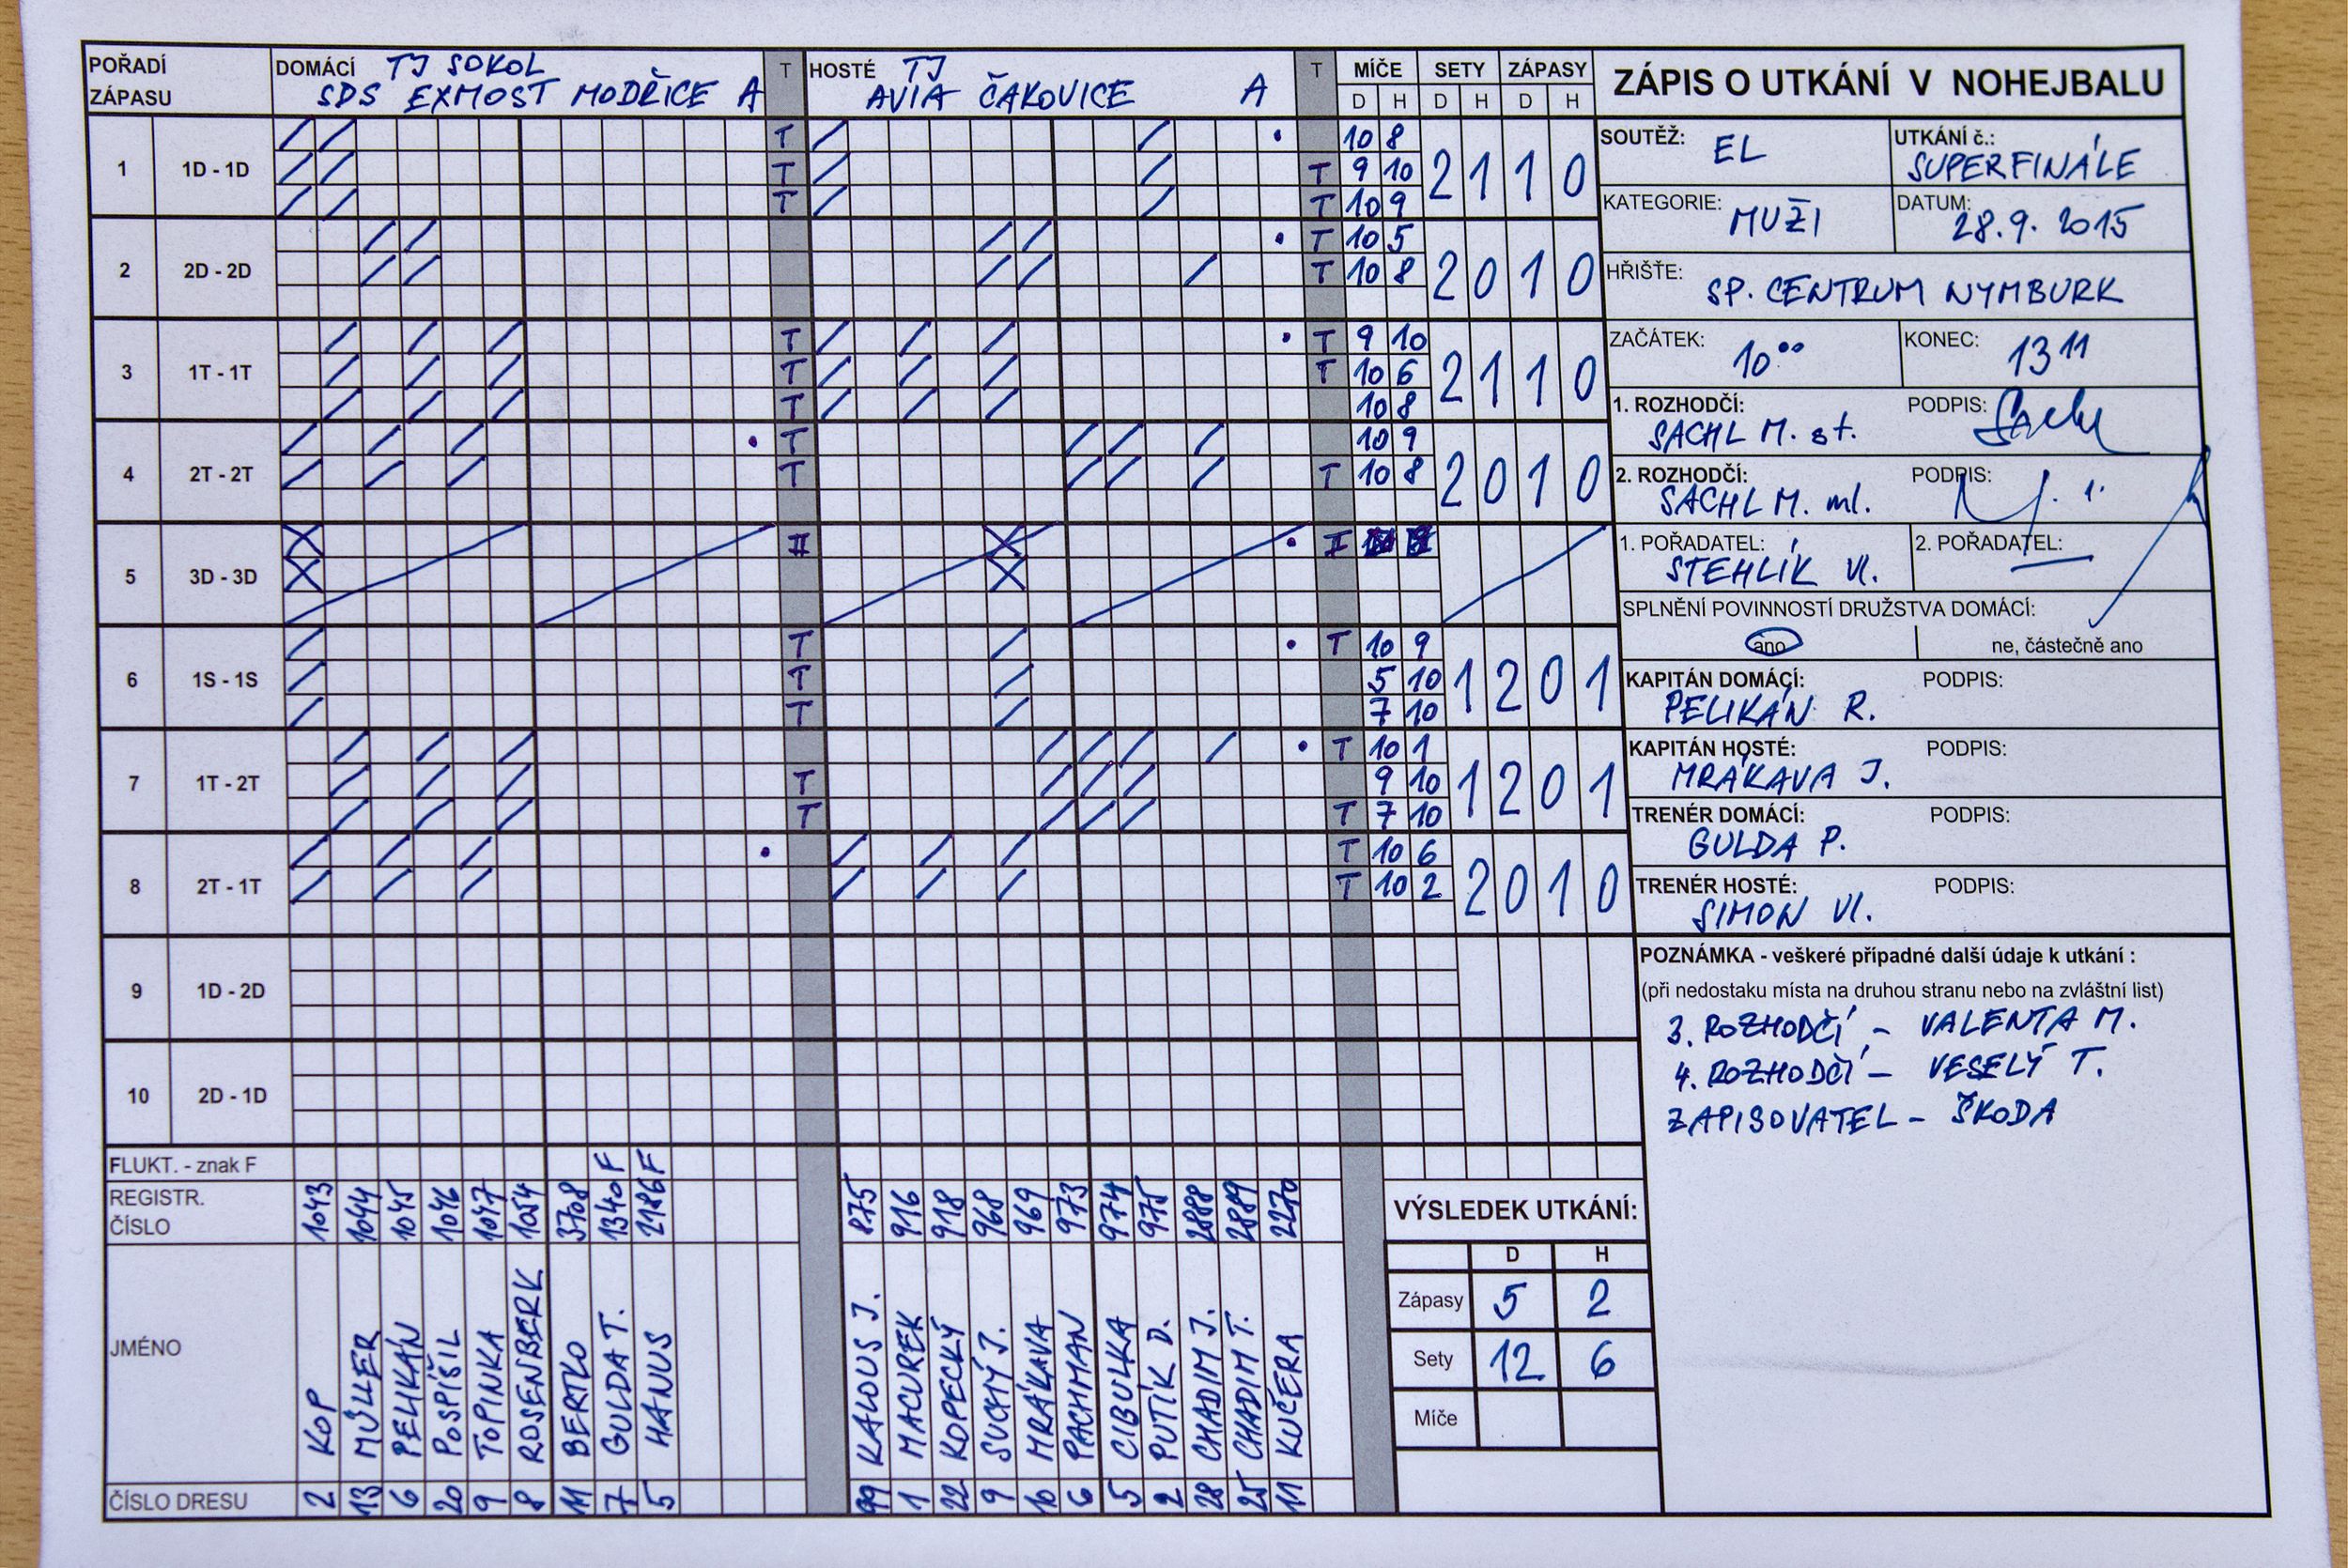 POŘADÍ ZÁPASU
DOMÁCÍ TJ SOKOL
SDS EXMOST MODŘICE A
T
HOSTÉ TJ
AVIA ČAKOVICE A
T
MÍČE SETY ZÁPASY
D H D H D H
1 1D - 1D T 10 8
T T 9 10 2 1 1 0
T T 10 9
2 2D - 2D T 10 5
T 10 8 2 0 1 0
3 1T - 1T T T 9 10
T T 10 6 2 1 1 0
T 10 8
4 2T - 2T T 10 9
T T 10 8 2 0 1 0
5 3D - 3D
6 1S - 1S T T 10 9
T 5 10 1 2 0 1
T 7 10
7 1T - 2T T 10 1
T 9 10 1 2 0 1
T T 7 10
8 2T - 1T T 10 6
T 10 2 2 0 1 0
9 1D - 2D
10 2D - 1D
FLUKT. - znak F F F
REGISTR. ČÍSLO 1043 1044 1045 1046 1047 1054 3708 1340 2186 875 916 918 968 969 973 974 975 2888 2889 2270
JMÉNO KOP MÜLLER PELIKÁN POSPÍŠIL TOPINKA ROSENBERK BERTKO GULDA T. HANUS KALOUS J. MACUREK KOPECKÝ SUCHÝ J. MRÁKAVA PACHMAN CIBULKA PUTÍK D. CHADIM J. CHADIM T. KUČERA
ČÍSLO DRESU 2 13 6 20 9 8 11 7 5 99 1 22 9 10 6 5 2 28 25 11
ZÁPIS O UTKÁNÍ V NOHEJBALU
SOUTĚŽ: EL
UTKÁNÍ č.: SUPERFINÁLE
KATEGORIE: MUŽI
DATUM: 28.9. 2015
HŘIŠTĚ: SP. CENTRUM NYMBURK
ZAČÁTEK: 10 00
KONEC: 13 11
1. ROZHODČÍ: PODPIS:
SACHL M. st.
2. ROZHODČÍ: PODPIS:
SACHL M. ml.
1. POŘADATEL: 2. POŘADATEL:
STEHLÍK Vl. —
SPLNĚNÍ POVINNOSTÍ DRUŽSTVA DOMÁCÍ:
ano ne, částečně ano
KAPITÁN DOMÁCÍ: PODPIS:
PELIKÁN R.
KAPITÁN HOSTÉ: PODPIS:
MRÁKAVA J.
TRENÉR DOMÁCÍ: PODPIS:
GULDA P.
TRENÉR HOSTÉ: PODPIS:
SIMON Vl.
POZNÁMKA - veškeré případné další údaje k utkání :
(při nedostaku místa na druhou stranu nebo na zvláštní list)
3. ROZHODČÍ - VALENTA M.
4. ROZHODČÍ - VESELÝ T.
ZAPISOVATEL - ŠKODA
VÝSLEDEK UTKÁNÍ:
D H
Zápasy 5 2
Sety 12 6
Míče